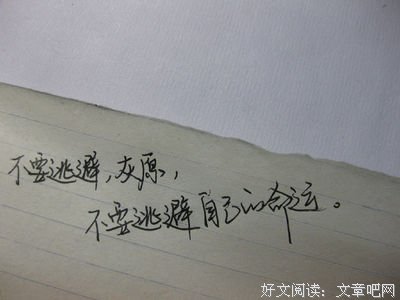 不要逃避，灰原，
不要逃避自己的命运。
好文阅读：文章吧网